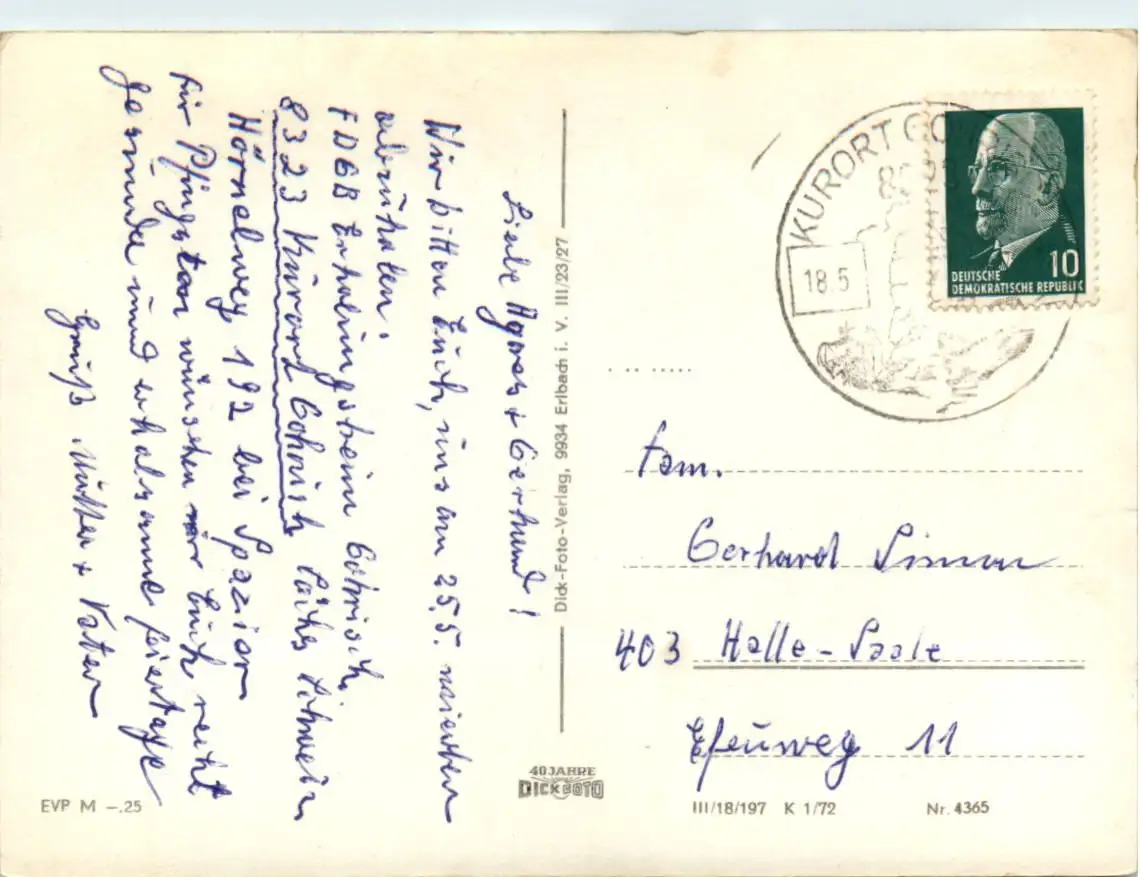 Liebe Agnes + Gerhard!
Wir bitten Euch, uns am 25.5. wieder
abzuholen.
FDGB Erholungsheim Gohrisch
8323 Kurort Gohrisch Sächs Schweiz
Hörnelweg 192 bei Spazior
Für Pfingsten wünschen wir Euch recht
gesunde und erholsame Feiertage
Gruß Mutter + Vater
Dick-Foto-Verlag, 9934 Erlbach i. V. III/23/27
40 JAHRE
DICK FOTO
EVP M -.25
KURORT GO
18.5
10
DEUTSCHE
DEMOKRATISCHE REPUBLIK
Fam.
Gerhard Simon
403 Halle-Saale
Efeuweg 11
III/18/197 K 1/72 Nr. 4365